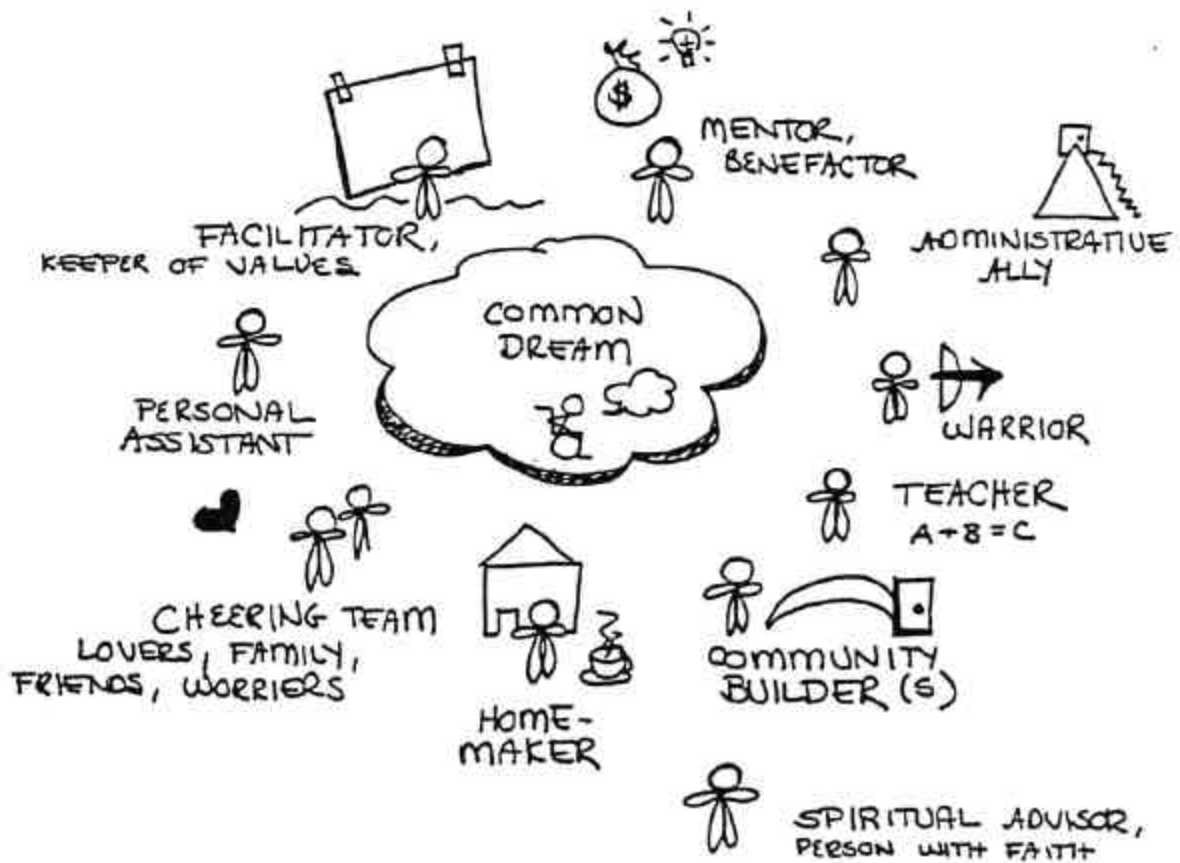 $
MENTOR,
BENEFACTOR
FACILITATOR,
KEEPER OF VALUES
ADMINISTRATIVE
ALLY
COMMON
DREAM
PERSONAL
ASSISTANT
WARRIOR
TEACHER
A+B=C
CHEERING TEAM
LOVERS, FAMILY,
FRIENDS, WORRIERS
COMMUNITY
BUILDER(S)
HOME-
MAKER
SPIRITUAL ADVISOR,
PERSON WITH FAITH